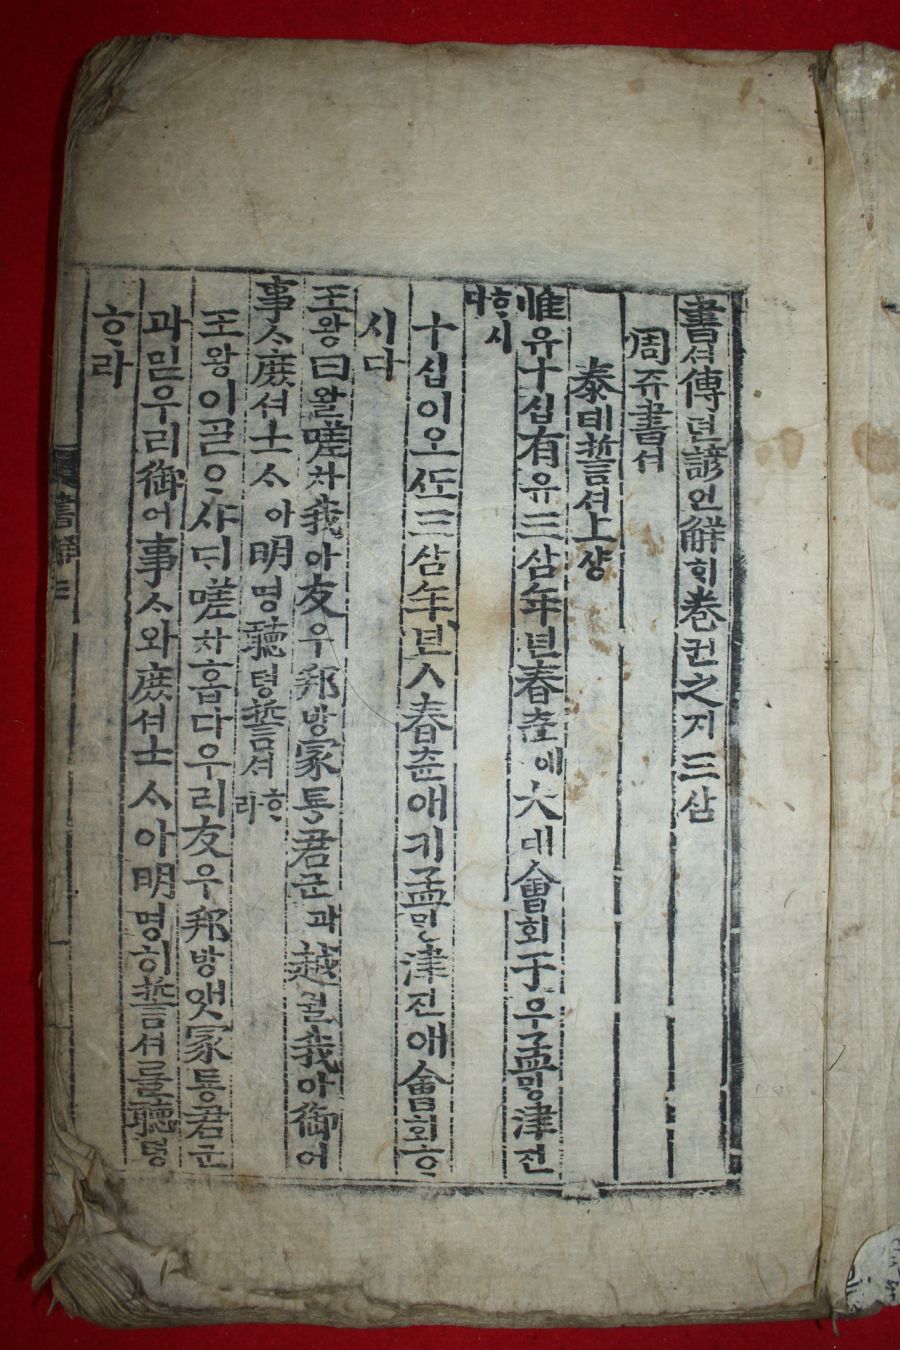 書셔傳뎐諺언解ᄒᆡ卷권之지三삼
周쥬書셔
泰태誓셔上샹
惟유十십有유三삼年년春츈에大대會회于우孟ᄆᆡᆼ津진
ᄒᆞ시다
十십이오ᄯᅩ三삼年년人春츈애키孟ᄆᆡᆼ津진애會회ᄒᆞ
시다
王왕曰왈嗟차我아友우邦방冢통君군과越월我아御어
事ᄉᆞ庶셔士ᄉᆞ아明명聽텽誓셔ᄒᆞ라
王왕이ᄀᆞᆯᄋᆞ샤ᄃᆡ嗟차홉다우리友우邦방앳冢통君군
과밋우리御어事ᄉᆞ와庶셔士ᄉᆞ아明명히誓셔를聽텽
ᄒᆞ라
書